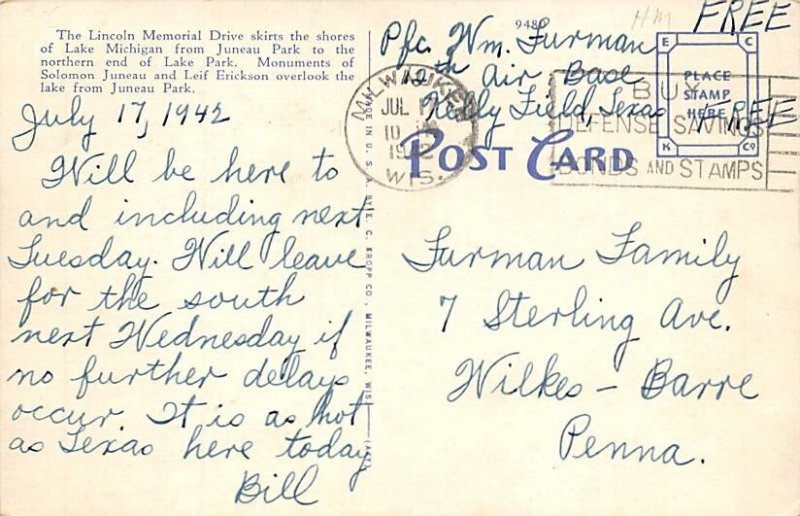 The Lincoln Memorial Drive skirts the shores
of Lake Michigan from Juneau Park to the
northern end of Lake Park. Monuments of
Solomon Juneau and Leif Erickson overlook the
lake from Juneau Park.
July 17, 1942
Will be here to
and including next
Tuesday. Will leave
for the south
next Wednesday if
no further delays
occur. It is as hot
as Texas here today
Bill
MADE IN U. S. A. BY E. C. KROPP CO., MILWAUKEE, WIS.
9480
HM
FREE
Pfc. Wm. Furman
12th Air Base
Kelly Field, Texas
FREE
MILWAUKEE
JUL
10
1942
WIS.
BUY
DEFENSE SAVINGS
BONDS AND STAMPS
E C
PLACE
STAMP
HERE
K Co
POST CARD
Furman Family
7 Sterling Ave.
Wilkes-Barre
Penna.